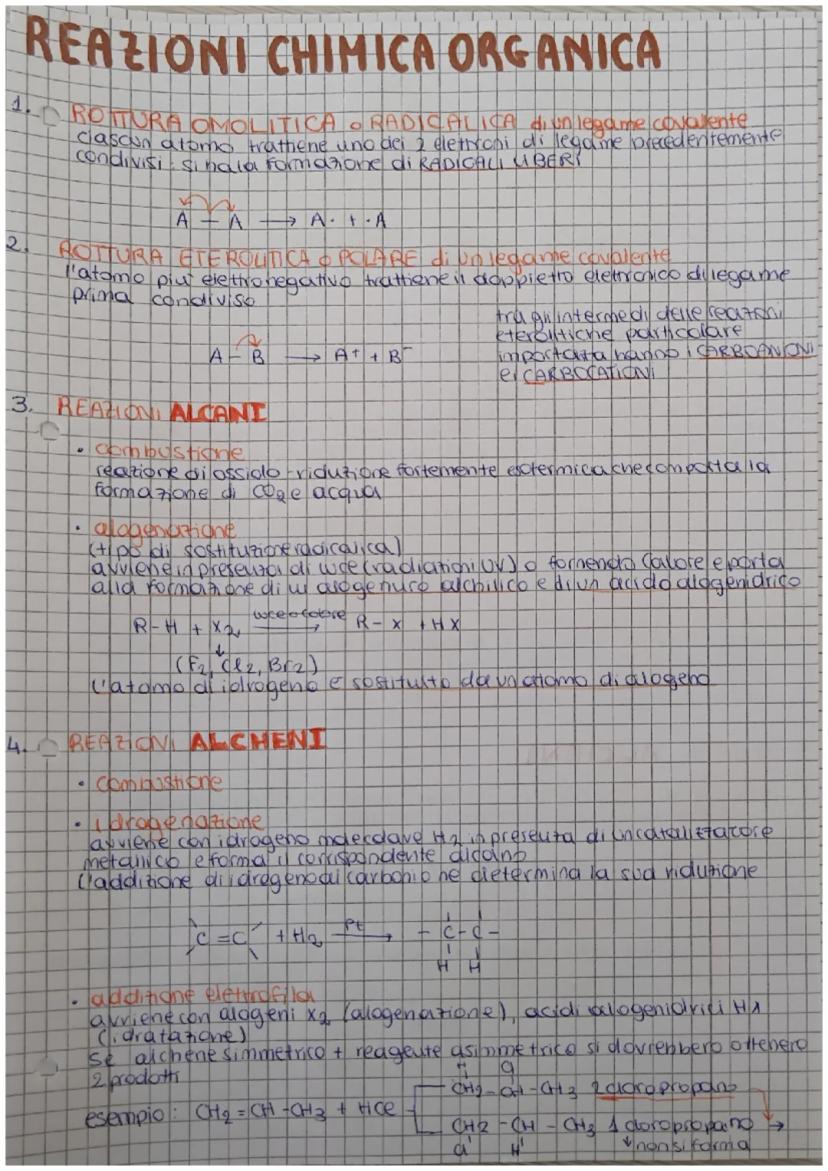 REAZIONI CHIMICA ORGANICA
1. ROTTURA OMOLITICA o RADICALICA di un legame covalente
ciascun atomo trattiene uno dei 2 elettroni di legame precedentemente
condivisi: si ha la formazione di RADICALI LIBERI
A - A → A· + ·A
2. ROTTURA ETEROLITICA o POLARE di un legame covalente
l'atomo piu' elettronegativo trattiene il doppietto elettronico di legame
prima condiviso
A - B → A+ + B-
tra gli intermedi delle reazioni
eterolitiche particolare
importanza hanno i CARBOANIONI
e i CARBOCATIONI
3. REAZIONI ALCANI
• combustione
reazione di ossido-riduzione fortemente esotermica che comporta la
formazione di CO2 e acqua
• alogenazione
(tipo di sostituzione radicalica)
avviene in presenza di luce (radiazioni UV) o fornendo calore e porta
alla formazione di un alogenuro alchilico e di un acido alogenidrico
R-H + X2 luce o calore → R-X + HX
↓
(F2, Cl2, Br2)
l'atomo di idrogeno è sostituito da un atomo di alogeno
4. REAZIONI ALCHENI
• combustione
• idrogenazione
avviene con idrogeno molecolare H2 in presenza di un catalizzatore
metallico e forma il corrispondente alcano
l'addizione di idrogeno al carbonio ne dietermina la sua riduzione
C=C + H2 Pt → -C-C-
H H
• addizione elettrofila
avviene con alogeni X2 (alogenazione), acidi alogenidrici HX
(idratazione)
se alchene simmetrico + reagente asimmetrico si dovrebbero ottenere
2 prodotti
H Cl
CH2-CH-CH3 2 cloropropano
esempio: CH2=CH-CH3 + HCl
CH2-CH-CH3 1 cloropropano →
Cl H ↓ non si forma